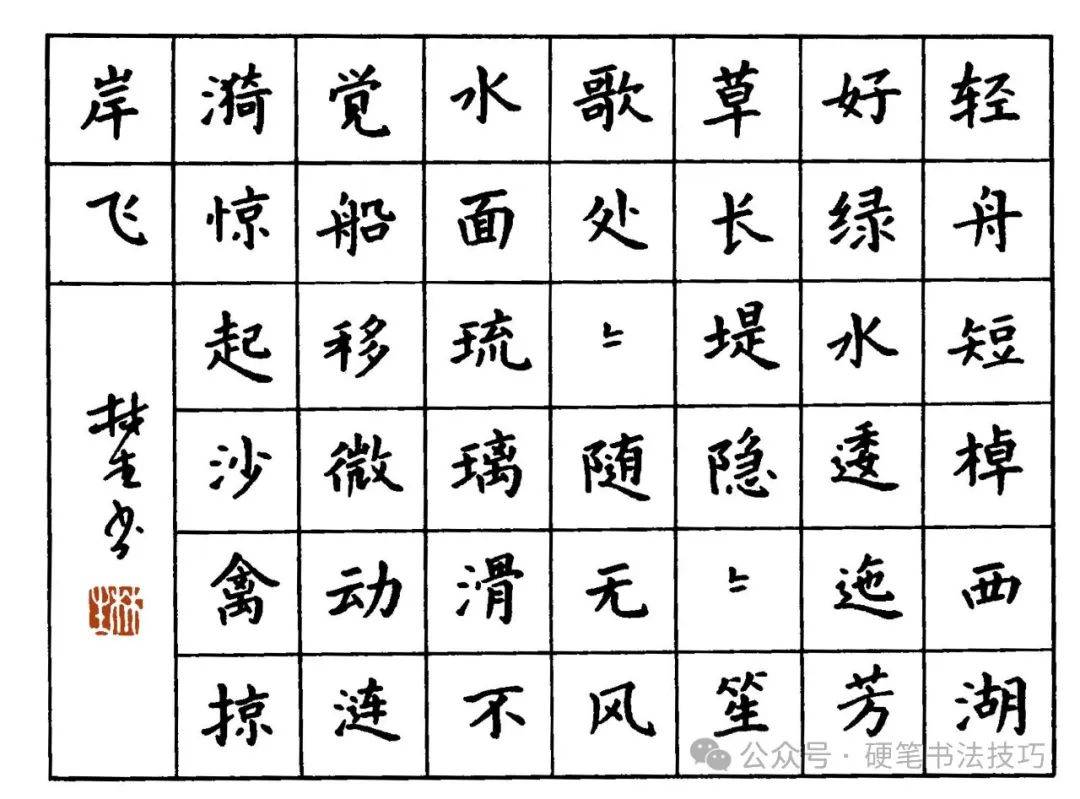 轻舟短棹西湖
好绿水逶迤芳
草长堤隐〻笙
歌处〻随无风
水面琉璃滑不
觉船移微动涟
漪惊起沙禽掠
岸飞
书
公众号 · 硬笔书法技巧